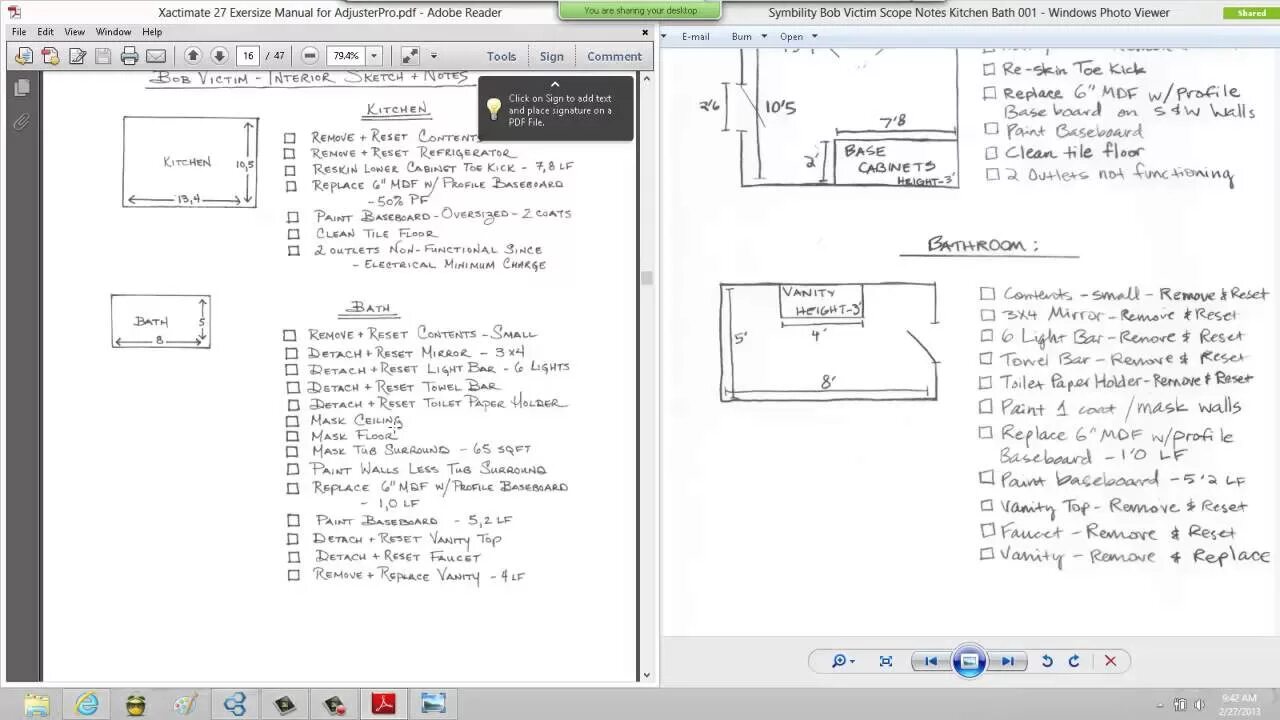 Xactimate 27 Exersize Manual for AdjusterPro.pdf - Adobe Reader
You are sharing your desktop
Symbility Bob Victim Scope Notes Kitchen Bath 001 - Windows Photo Viewer
Shared
File Edit View Window Help
16 / 47
79.4%
Tools Sign Comment
Click on Sign to add text
and place signature on a
PDF File.
BOB VICTIM - INTERIOR SKETCH + NOTES
KITCHEN
KITCHEN
10,5
13,4
REMOVE + RESET CONTENTS
REMOVE + RESET REFRIGERATOR
RESKIN LOWER CABINET TOE KICK - 7,8 LF
REPLACE 6" MDF W/ PROFILE BASEBOARD
- 50% PF
PAINT BASEBOARD - OVERSIZED - 2 COATS
CLEAN TILE FLOOR
2 OUTLETS NON-FUNCTIONAL SINCE
- ELECTRICAL MINIMUM CHARGE
BATH
BATH
5
8
REMOVE + RESET CONTENTS - SMALL
DETACH + RESET MIRROR - 3x4
DETACH + RESET LIGHT BAR - 6 LIGHTS
DETACH + RESET TOWEL BAR
DETACH + RESET TOILET PAPER HOLDER
MASK CEILING
MASK FLOOR
MASK TUB SURROUND - 65 SQFT
PAINT WALLS LESS TUB SURROUND
REPLACE 6" MDF W/ PROFILE BASEBOARD
- 1,0 LF
PAINT BASEBOARD - 5,2 LF
DETACH + RESET VANITY TOP
DETACH + RESET FAUCET
REMOVE + REPLACE VANITY - 4 LF
E-mail Burn Open
2'6
10'5
7'8
2'
BASE
CABINETS
HEIGHT-3'
Re-skin Toe Kick
Replace 6" MDF w/Profile
Baseboard on S&W Walls
Paint Baseboard
Clean tile floor
2 Outlets not functioning
BATHROOM:
VANITY
HEIGHT-3'
4'
5'
8'
Contents - small - Remove & Reset
3x4 Mirror - Remove & Reset
6 Light Bar - Remove & Reset
Towel Bar - Remove & Reset
Toilet Paper Holder - Remove & Reset
Paint 1 coat / mask walls
Replace 6" MDF w/profile
Baseboard - 1'0 LF
Paint baseboard - 5'2 LF
Vanity Top - Remove & Reset
Faucet - Remove & Reset
Vanity - Remove & Replace
9:42 AM
2/27/2013